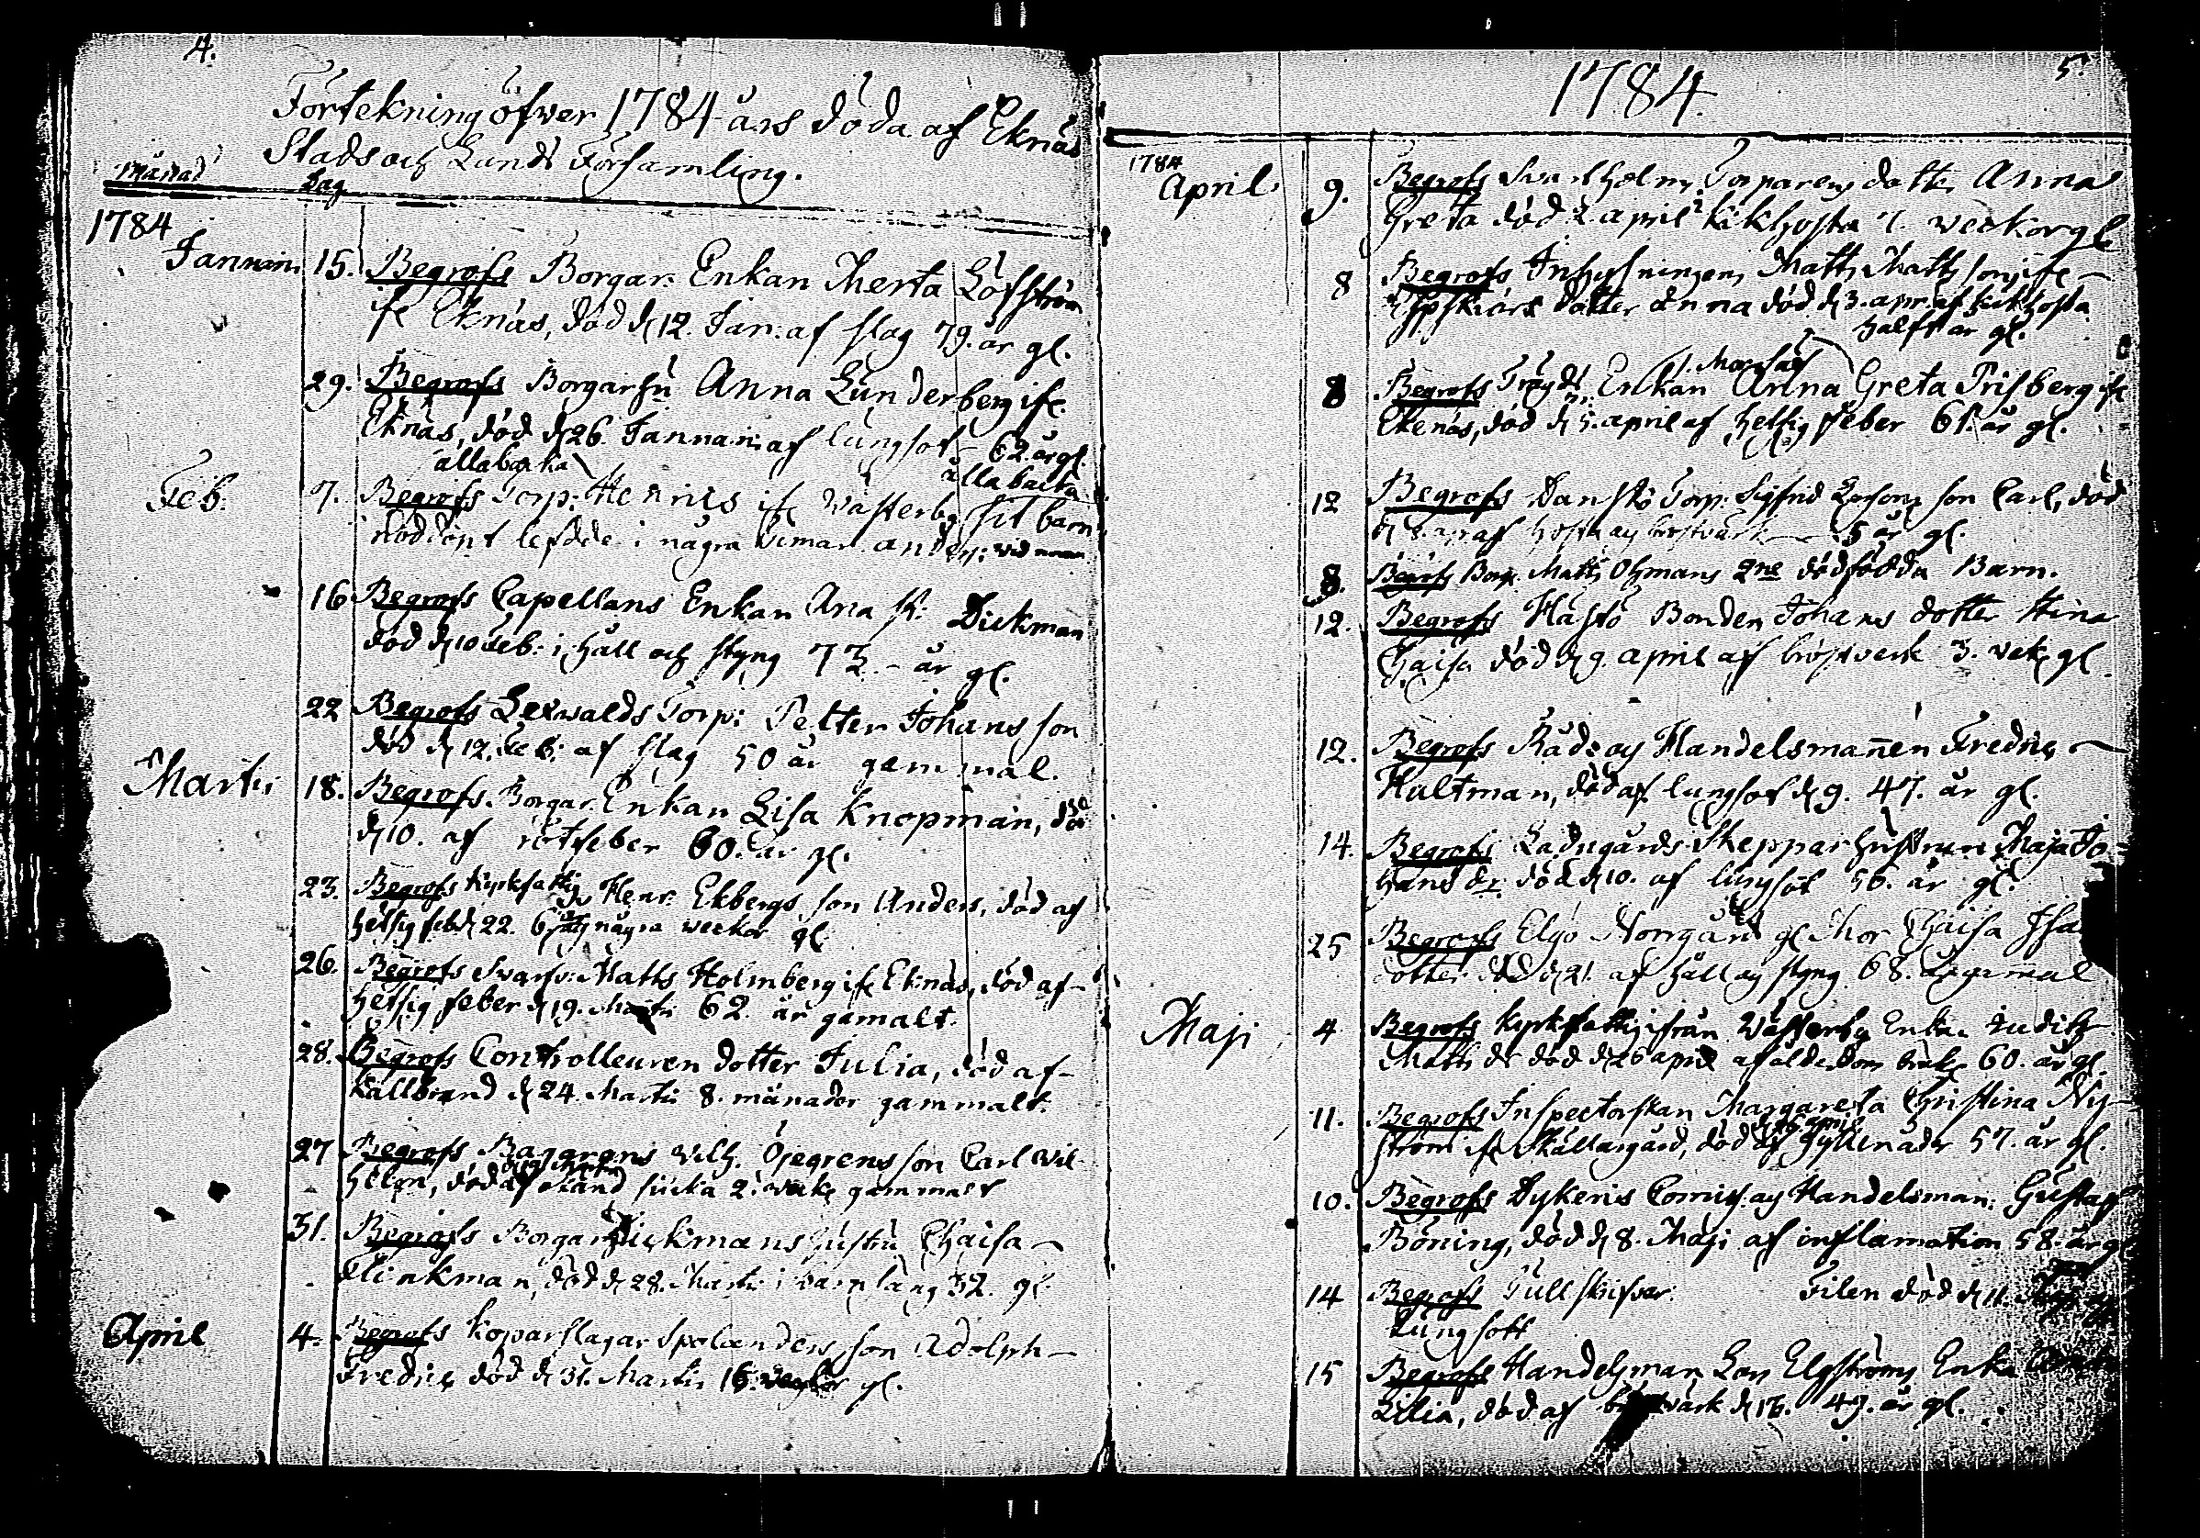 4.
Förtekning öfwer 1784 års döda af Eknäs
Stads och Lands Församling.
Månad
Dag
1784
Januari 15. Begrofs Borgar: Enkan Merta Löfström
ifr Eknäs, död d 12. Jan: af slag 79. år gl.
29. Begrofs Borgarfru Anna Lunderberg ifr.
Eknäs, död d 26. Januari: af lungsot - 62. år gl.
Feb. 7. Begrofs Torp: Henrics ifr Västerby sit barn
nöddöpt lefde i några timar
16 Begrofs Capellans Enkan Ana Dickman
död d 10 Feb: i håll och styng 73 - år gl.
22 Begrofs Lexwalds Torp: Petter Johansson
död d 12. Feb: af slag 50 år gammal.
Martii 18. Begrofs. Borgar. Enkan Lisa Knopman, död
d 10. af rötfeber 60. år gl.
23. Begrofs Kyrkfattig Henr. Ekbergs son Anders, död af
hetsig feb d 22. 6 några weckor gl
26. Begrofs Swarfv: Matts Holmberg ifr Eknäs, död af
hetsig feber d 19. Martii 62. år gamalt.
28. Begrofs Controlleuren dotter Julia, död af
kallbrand d 24. Martii 8. månader gammalt.
27 Begrofs Wilh. Öjegrens son Carl Wil
helm, död af okänd siuka 2. weck gammalt
31. Begrofs Borgar Dickmans hustru Chaisa
Flinkman, död d 28. Martii i barnsäng 32. gl
April 4. Begrofs Koparslagar Spolanders son Adolph
Fredric död d 31. Martii 16. weckor gl.
1784
5.
1784
April 9. Begrofs Svartholms Torparens dotter Anna
Greta död 2 april kikhosta 7. weckor gl
8 Begrofs Inhysningens Matts Mattssons ifr
dotter Anna död d 3. apr. af kikhosta
halft år gl.
8 Begrofs Enkan Anna Greta Frisberg ifr
Ekenäs, död d 5. april af hetsig feber 61. år gl.
12 Begrofs Danskö Torp: Sigfrid Larsons son Carl, död
d 8. apr af hosta och bröstvärk 5 år gl.
8. Begrofs Borg. Matts Öhmans 2ne dödfödda Barn.
12. Begrofs Hästö Bonden Johans dotter Stina
Chaisa död d 9. april af bröstverk 3. vek gl
12. Begrofs Råds och Handelsmannen Fredric
Hultman, död af lungsot d 9. 47. år gl.
14. Begrofs Ladugårds Skeppar hustrun Maja Jo
hans dr död d 10. af lungsot 56. år gl.
25 Begrofs Elgö Norrgård gl Mor Chaisa Isa
dotter död d 21. af håll och styng 68. år gamal
Maji 4 Begrofs Kyrkfattig ifrån Västerby Enka Judith
Matts dr död d 26 april af ålderdoms bräck 60. år gl.
11. Begrofs Inspectorskan Margareta Christina Ny
ström ifr Källargård, död af gyllenåder 57. år gl.
10. Begrofs Dykeris Comiss. och Handelsman: Gustaf
Böning, död d 8. Maji af inflamation 58. år gl
14 Begrofs Tullskrifvar: Filen död d 11.
Lungsott
15 Begrofs Handelsman Lars Elgströms Enka
Lilia, död af d 13. 49. år gl.